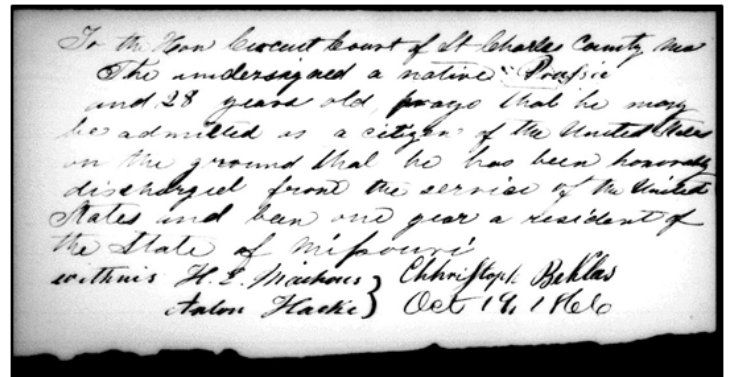 To the Hon Circuit Court of St Charles County Mo
The undersigned a native Prussia
and 28 years old, prays that he may
be admitted as a citizen of the United States
on the ground that he has been honorably
discharged from the service of the United
States and been one year a resident of
the State of Missouri
withnis H. L.
Anton
Christoph
Oct 19, 1866